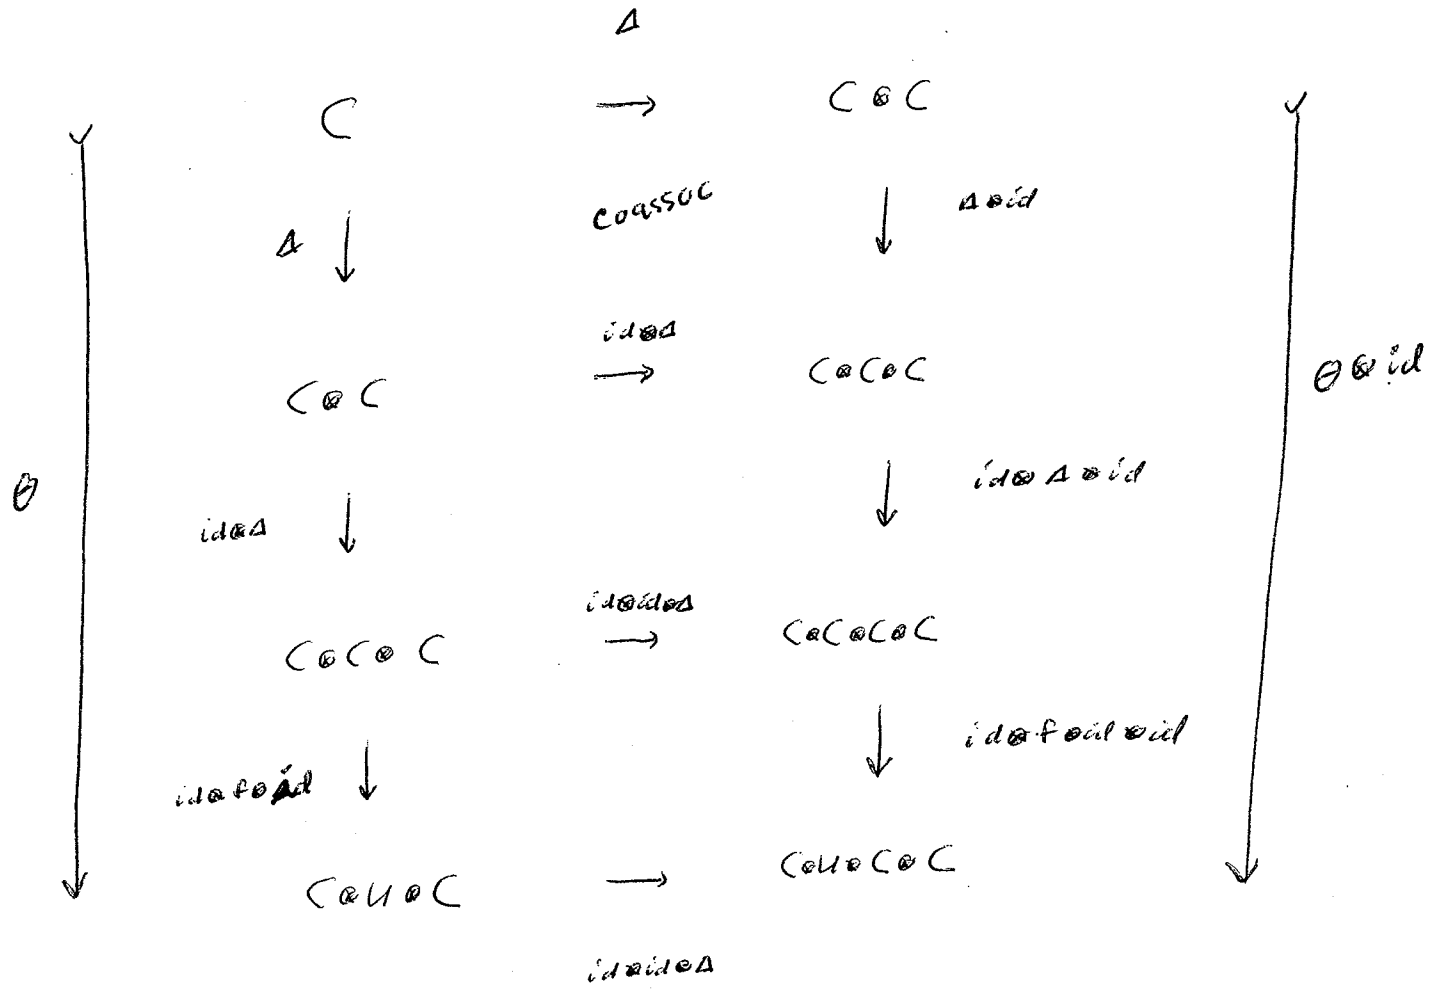 Δ
C → C ⊗ C
coassoc
Δ ↓ ↓ Δ⊗id
id⊗Δ
C ⊗ C → C⊗C⊗C
θ⊗id
θ
id⊗Δ ↓ ↓ id⊗Δ⊗id
id⊗id⊗Δ
C⊗C⊗C → C⊗C⊗C⊗C
id⊗f⊗id ↓ ↓ id⊗f⊗id⊗id
C⊗U⊗C → C⊗U⊗C⊗C
id⊗id⊗Δ